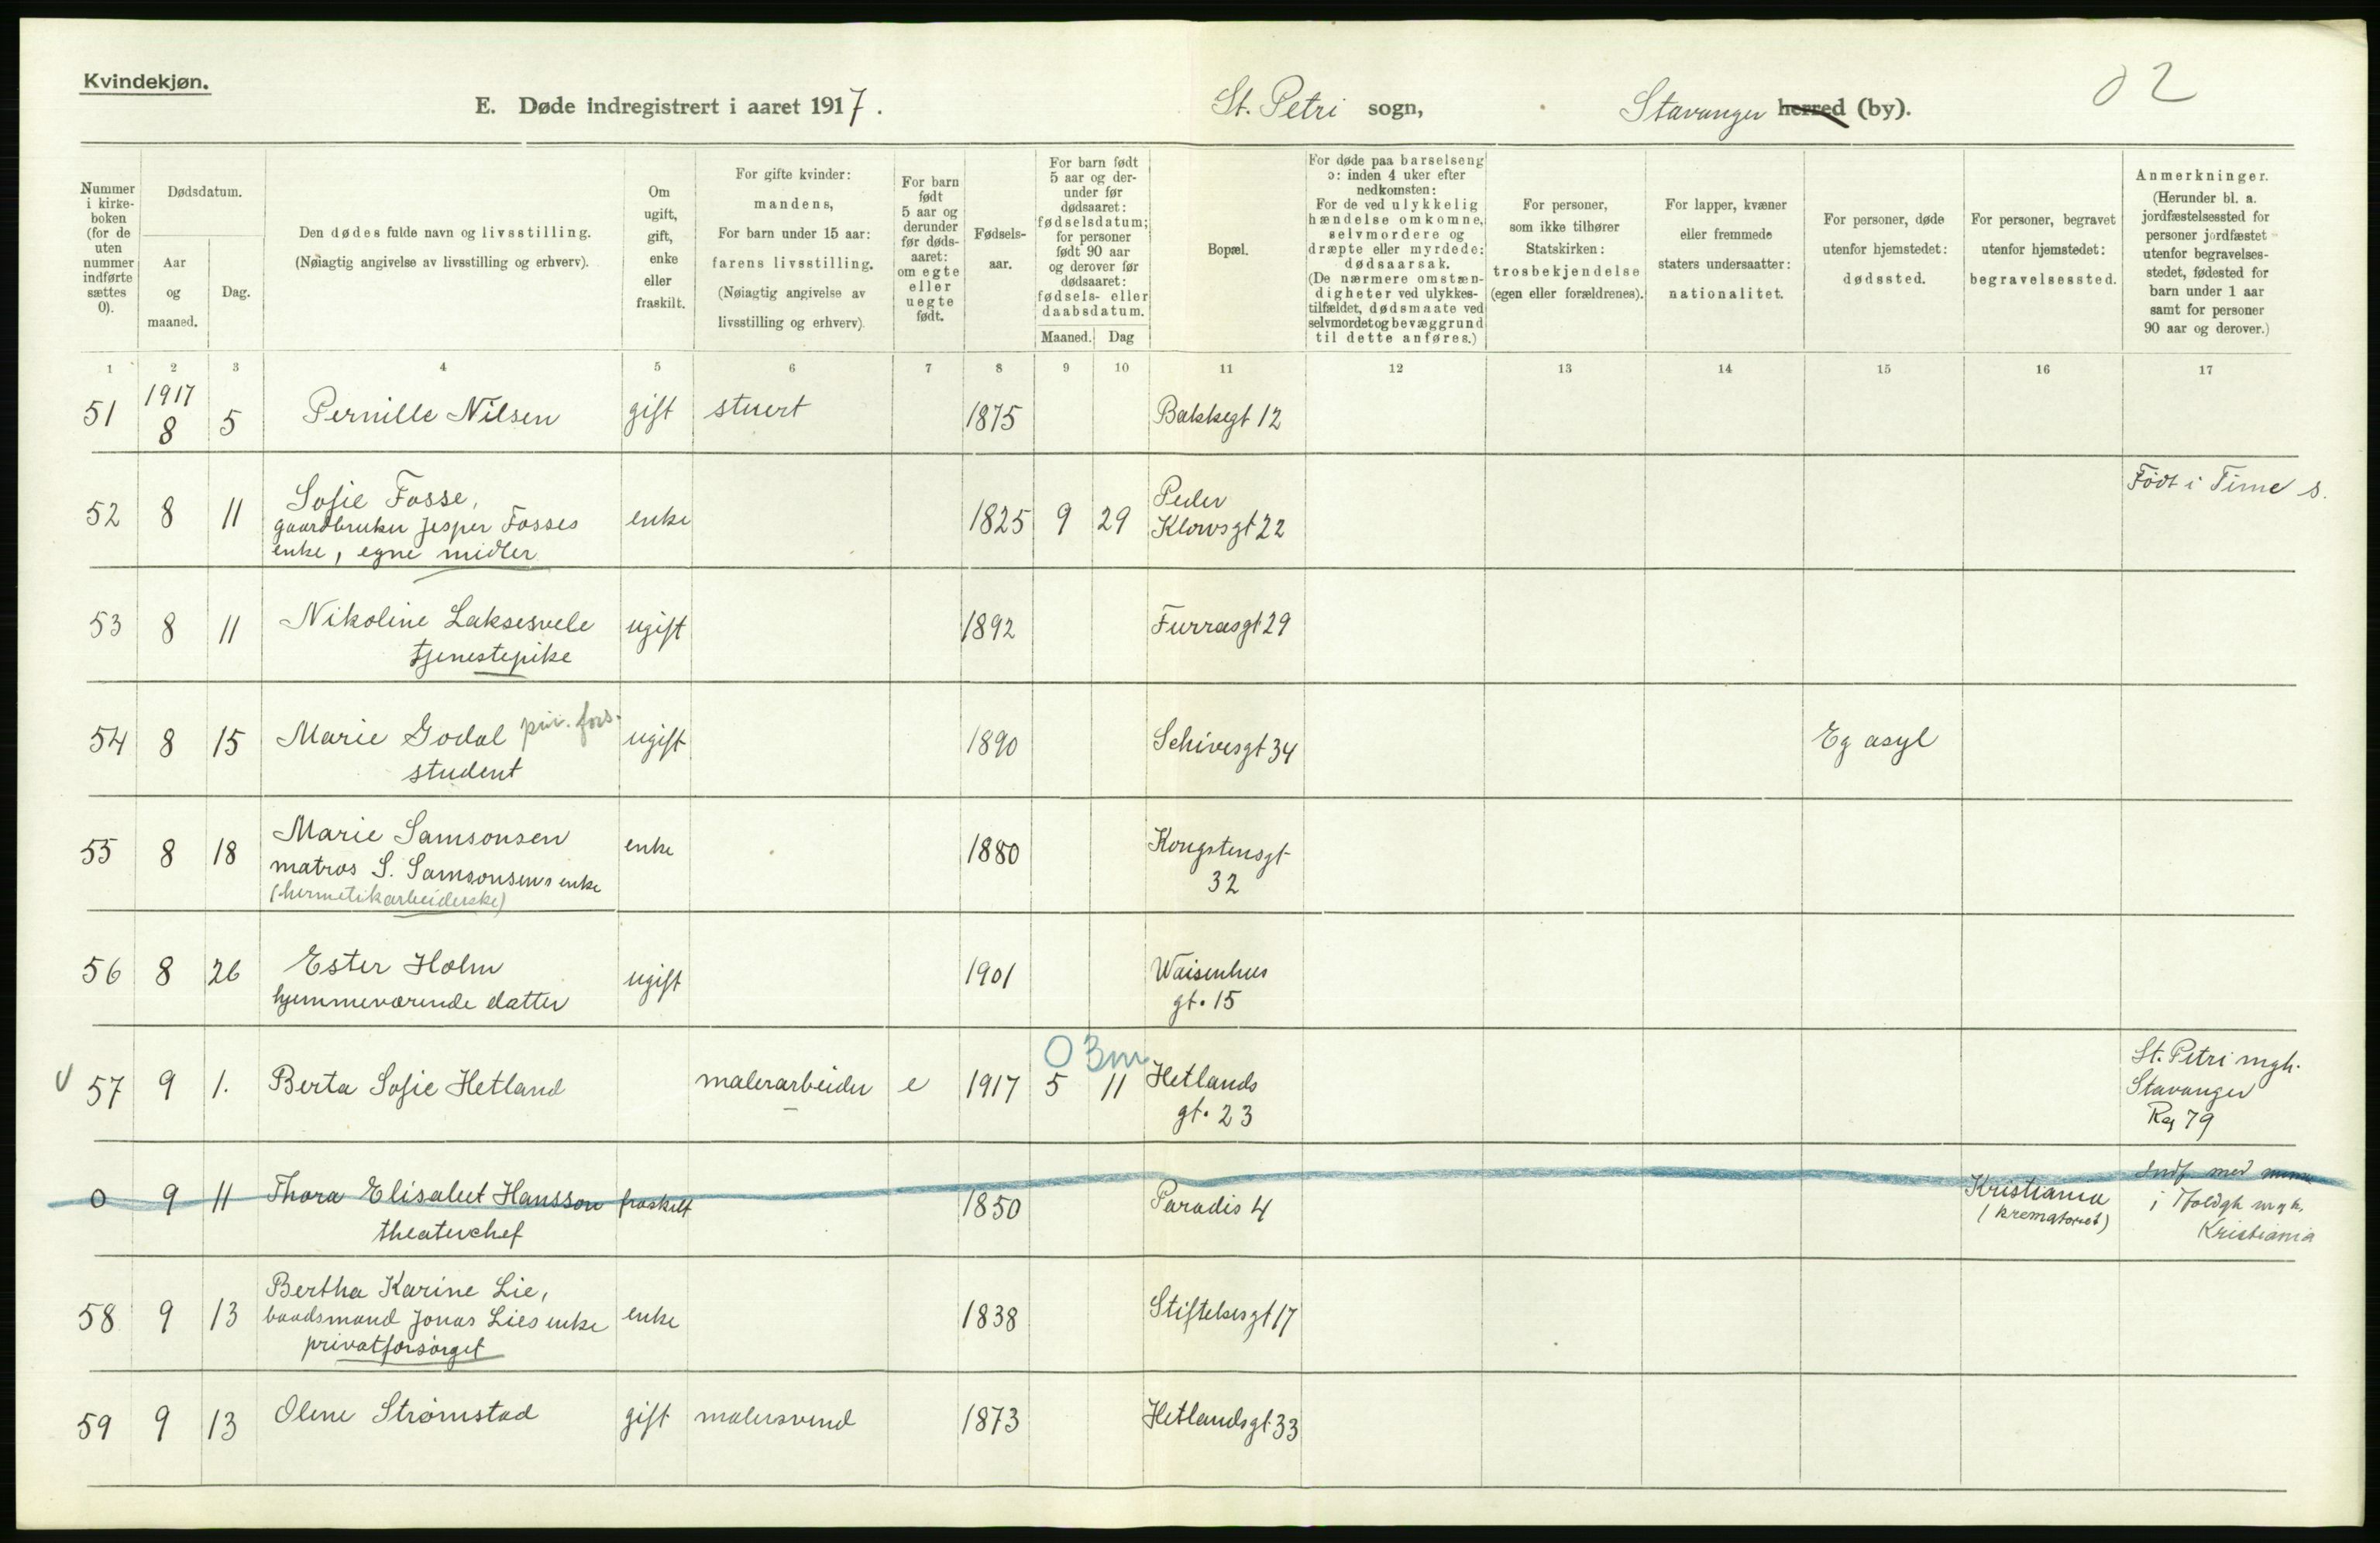 Kvindekjøn.
E. Døde indregistrert i aaret 1917.
St. Petri sogn,
Stavanger herred (by).
02
Nummer i kirke-boken (for de uten nummer indførte sættes 0).
Dødsdatum.
Aar og maaned.
Dag.
Den dødes fulde navn og livsstilling.
(Nøiagtig angivelse av livsstilling og erhverv).
Om ugift, gift, enke eller fraskilt.
For gifte kvinder: mandens,
For barn under 15 aar: farens livsstilling.
(Nøiagtig angivelse av livsstilling og erhverv).
For barn født 5 aar og derunder før døds-aaret: om egte eller uegte født.
Fødsels-aar.
For barn født 5 aar og der-under før dødsaaret: fødselsdatum; for personer født 90 aar og derover før dødsaaret: fødsels- eller daabsdatum.
Maaned. Dag
Bopæl.
For døde paa barselseng ɔ: inden 4 uker efter nedkomsten:
For de ved ulykkelig hændelse omkomne, selvmordere og dræpte eller myrdede: dødsaarsak.
(De nærmere omstæn-digheter ved ulykkes-tilfældet, dødsmaate ved selvmordet og bevæggrund til dette anføres.)
For personer, som ikke tilhører Statskirken: trosbekjendelse (egen eller forældrenes).
For lapper, kvæner eller fremmede staters undersaatter: nationalitet.
For personer, døde utenfor hjemstedet: dødssted.
For personer, begravet utenfor hjemstedet: begravelsessted.
Anmerkninger.
(Herunder bl. a. jordfæstelsessted for personer jordfæstet utenfor begravelses-stedet, fødested for barn under 1 aar samt for personer 90 aar og derover.)
1 2 3 4 5 6 7 8 9 10 11 12 13 14 15 16 17
1917
51 8 5 Pernille Nilsen gift stuert 1875 Bakkegt 12
52 8 11 Sofie Fosse,
gaardbruker Jesper Fosses
enke, egne midler
enke 1825 9 29 Peder
Klowsgt 22
Født i Time s.
53 8 11 Nikoline Laksesvele
tjenestepike
ugift 1892 Furrasgt 29
54 8 15 Marie Godal priv. fors.
student
ugift 1890 Schivesgt 34 Eg asyl
55 8 18 Marie Samsonsen
matros S. Samsonsens enke
(hermetikarbeiderske)
enke 1880 Kongstensgt
32
56 8 26 Ester Holm
hjemmeværende datter
ugift 1901 Waisenhus
gt. 15
0 3m
V 57 9 1. Berta Sofie Hetland malerarbeider e 1917 5 11 Hetlands
gt. 23
St. Petri mgh.
Stavanger
79
0 9 11 Thora Elisabet Hansson
theaterchef
fraskilt 1850 Paradis 4 Kristiania
(krematoriet)
Indf. med
i mgh.
Kristiania
58 9 13 Bertha Karine Lie,
baadsmand Jonas Lies enke
privatforsørget
enke 1838 Stiftelsesgt 17
59 9 13 Olene Strømstad gift malersvend 1873 Hetlandsgt. 33